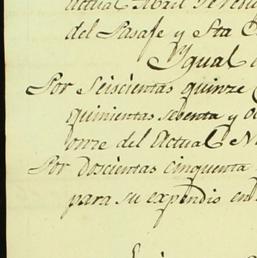 actual Abril
del Pasaje y Sta
Ygual
Por Seiscientas quinze
quinientas setenta y
onze del Actual
Por doscientas cinquenta
para su expendio en